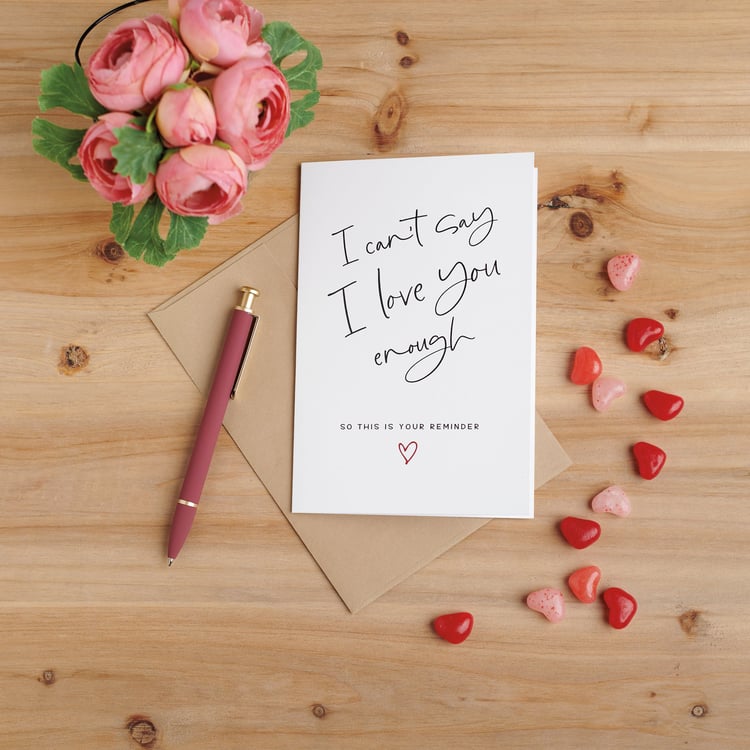 I can't say
I love you
enough
SO THIS IS YOUR REMINDER